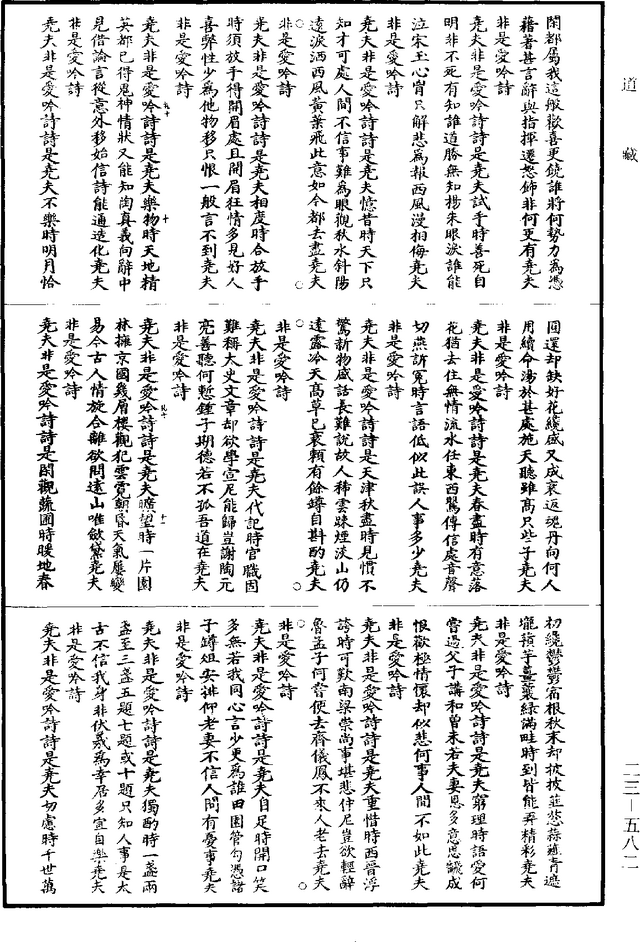 道藏
閑都屬我這般歡喜更饒誰將何勢力為憑
藉著甚言辭與指揮遷怒飾非何更有堯夫
非是愛吟詩
堯夫非是愛吟詩詩是堯夫試手時善死自
明非不死有知誰道勝無知楊朱眼淚誰能
泣宋玉心胷只解悲為報西風漫相侮堯夫
非是愛吟詩
堯夫非是愛吟詩詩是堯夫憶昔時天下只
知才可處人間不信事難為眼觀秋水斜陽
遠淚洒西風黃葉飛此意如今都去盡堯夫
非是愛吟詩
堯夫非是愛吟詩詩是堯夫相度時合放手
時須放手得開眉處且開眉狂情多見好人
喜弊性少為他物移只恨一般言不到堯夫
非是愛吟詩
堯夫非是愛吟詩詩是堯夫樂物時天地精
英都已得鬼神情狀又能知陶真義向辭中
見借論言從意外移始信詩能通造化堯夫
非是愛吟詩
堯夫非是愛吟詩詩是堯夫不樂時明月恰
圓還却缺好花纔盛又成衰返魂丹向何人
用續命湯於甚處施天聽雖高只些子堯夫
非是愛吟詩
堯夫非是愛吟詩詩是堯夫春盡時有意落
花猶去住無情流水任東西鶯傳信處音聲
切燕訴冤時言語低似此誤人事多少堯夫
非是愛吟詩
堯夫非是愛吟詩詩是天津秋盡時見慣不
驚新物盛話長難說故人稀雲踈煙淡山仍
遠露冷天高草已衰賴有餘罇自斟酌堯夫
非是愛吟詩
堯夫非是愛吟詩詩是堯夫代記時官職固
難稱太史文章却欲學宣尼能歸豈謝陶元
亮善聽何慙鍾子期德若不孤吾道在堯夫
非是愛吟詩
堯夫非是愛吟詩詩是堯夫曠望時一片園
林擁京國幾層樓觀犯雲霓朝昏天氣屢變
易今古人情旋合離欲問遠山唯斂黛堯夫
非是愛吟詩
堯夫非是愛吟詩詩是閑觀蔬圃時暖地春
初纔鬱鬱宿根秋末却披披韮葱蒜薤青遮
壠蘋芋薑蘘綠滿畦時到皆能弄精彩堯夫
非是愛吟詩
堯夫非是愛吟詩詩是堯夫窮理時語愛何
嘗過父子講和曾未若夫妻恩多意思翻成
恨歡極情懷却似悲何事人間不如此堯夫
非是愛吟詩
堯夫非是愛吟詩詩是堯夫重惜時西晉浮
誇時可歎南梁崇尚事堪悲仲尼豈欲輕辭
魯孟子何嘗便去齊儀鳳不來人老去堯夫
非是愛吟詩
堯夫非是愛吟詩詩是堯夫自足時開口笑
多無若我同心言少更為誰田園管勾憑諸
子罇俎安排仰老妻不信人間有憂事堯夫
非是愛吟詩
堯夫非是愛吟詩詩是堯夫獨酌時一盞兩
盞至三盞五題七題或十題只知人事是太
古不信我身非伏羲為幸居多宜自樂堯夫
非是愛吟詩
堯夫非是愛吟詩詩是堯夫切慮時千世萬
二三—五八二